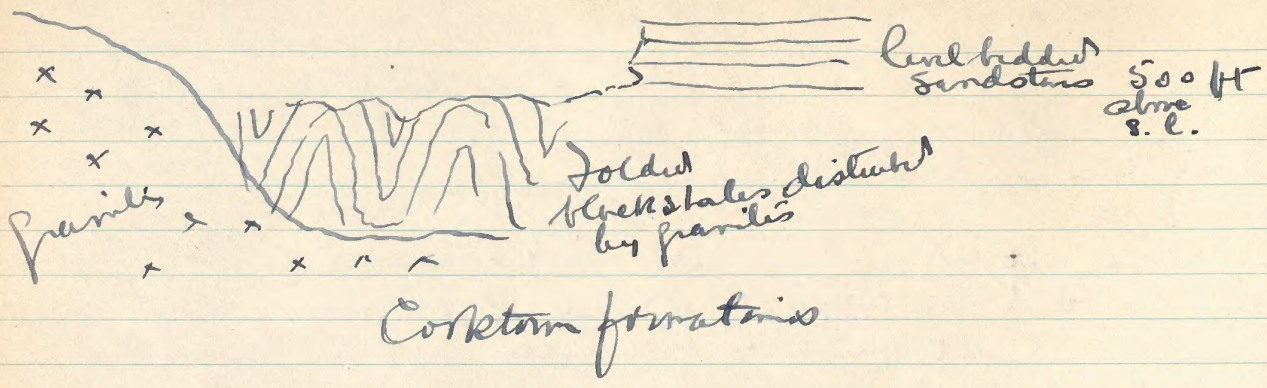 level bedded
sandstones 500 ft
above
s. l.
Granites
Folded
black shales disturbed
by granites
Cooktown formations